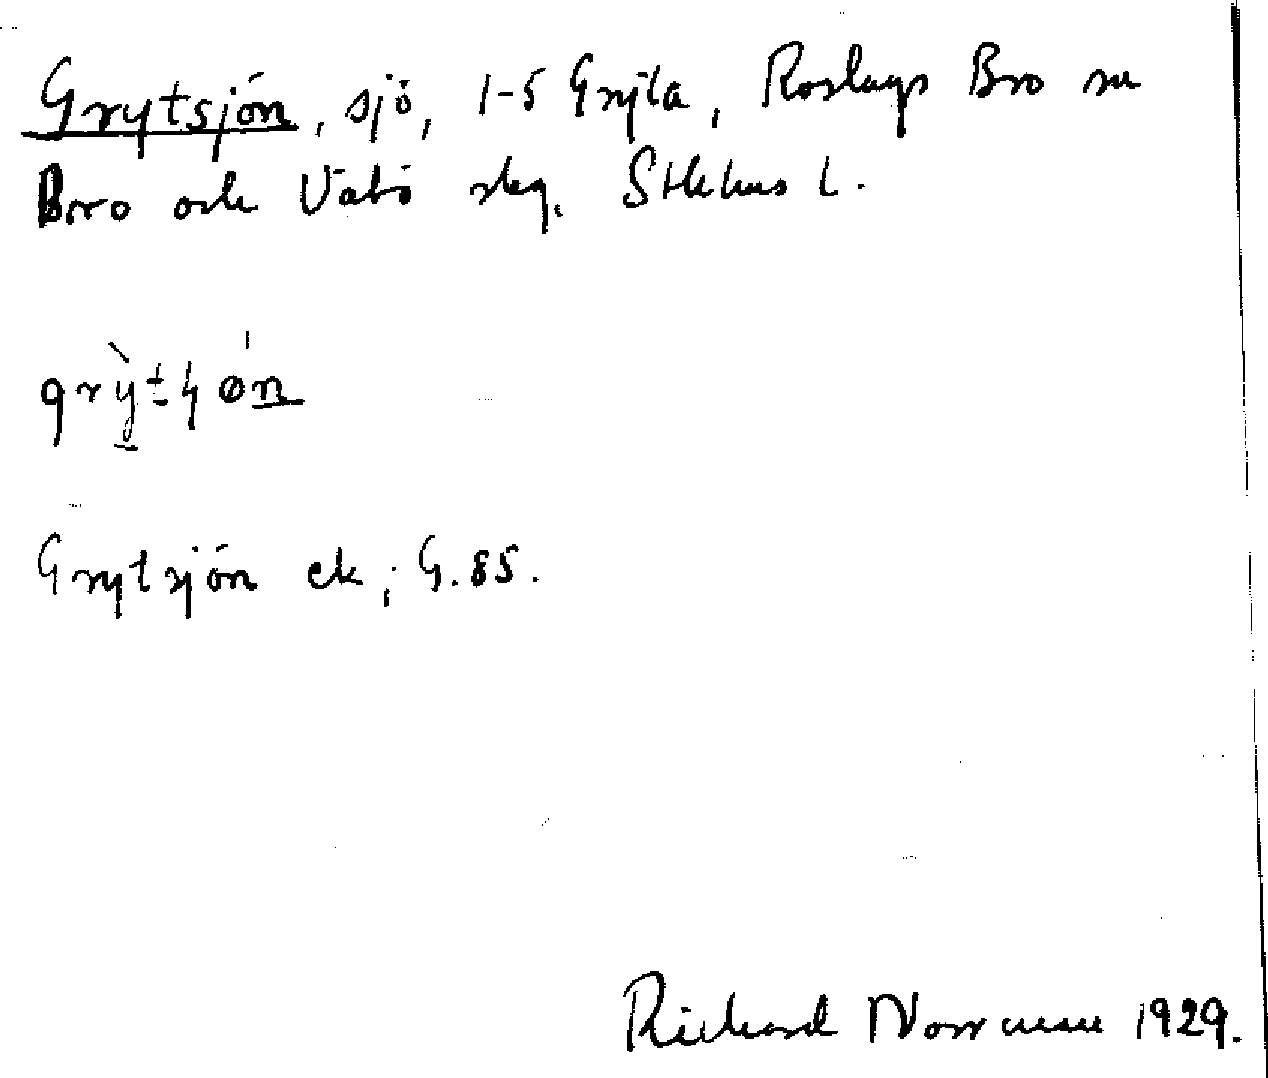 Grytsjön, sjö, 1-5 Gryta, Roslags Bro sn
Bro och Vätö skg. Sthlms L.
Grytsjön ek, G. 85.
Richard Norrman 1929.